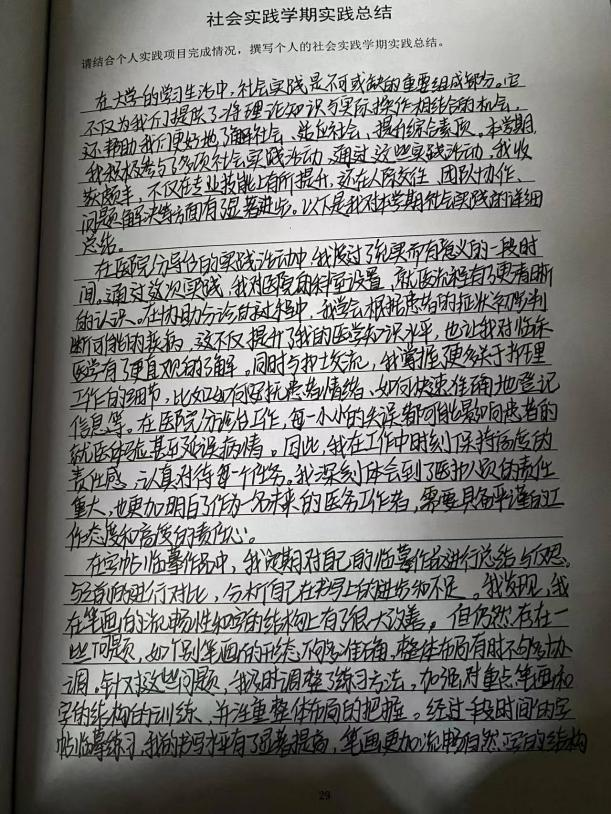 社会实践学期实践总结
请结合个人实践项目完成情况，撰写个人的社会实践学期实践总结。
在大学的学习生活中，社会实践是不可或缺的重要组成部分。它
不仅为我们提供了将理论知识与实际操作相结合的机会，
还帮助我们更好地了解社会、适应社会，提升综合素质。本学期，
我积极参与了多项社会实践活动，通过这些实践活动，我收
获颇丰，不仅在专业技能上有所提升，还在人际交往、团队协作、
问题解决等方面有了显著进步。以下是我对本学期社会实践的详细
总结。
在医院分导台的实践活动中，我度过了充实而有意义的一段时
间。通过数次实践，我对医院的科室设置、就医流程有了更清晰
的认识。在协助分诊的过程中，我学会根据患者的症状初步判
断可能的疾病，这不仅提升了我的医学知识水平，也让我对临床
医学有了更直观的了解。同时与护士交流，我掌握更多关于护理
工作的细节，比如如何安抚患者情绪、如何快速准确地登记
信息等。在医院分诊台工作，每一个小的失误都可能影响患者的
就医体验甚至延误病情。因此，我在工作中时刻保持高度的
责任感，认真对待每个任务。我深刻体会到了医护人员的责任
重大，也更加明白了作为一名未来的医务工作者，需要具备严谨的工
作态度和高度的责任心。
在字帖临摹作品中，我定期对自己的临摹作品进行总结与反思。
与之前的进行对比，分析自己在书写上的进步和不足。我发现，我
在笔画的流畅性和字的结构上有了很大改善。但仍然存在一
些问题，如个别笔画的形态不够准确，整体布局有时不够协
调。针对这些问题，我及时调整了练习方法，加强对重点笔画和
字的结构的训练，并注重整体布局的把握。经过一段时间的字
帖临摹练习，我的书写水平有了显著提高，笔画更加流畅自然，字的结构
29